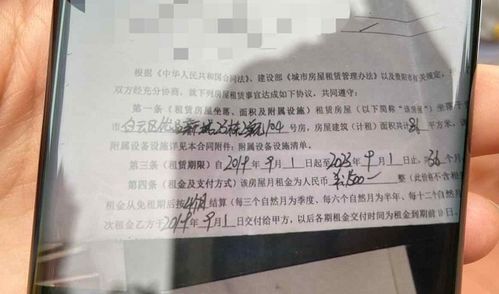 根据《中华人民共和国合同法》、建设部《城市房屋租赁管理办法》以及贵阳市有关规定，
双方经充分协商，就下列房屋租赁事宜达成如下协议，共同遵守：
第一条（租赁房屋坐落、面积及附属设施）租赁房屋（以下简称"该房屋"）坐落于
市白云区 新城 104号房，房屋建筑（计租）面积共计81平方米，该
附属设施详见本合同附件：附属设备设施清单。
第三条（租赁期限）自2019年9月1日起至2023年9月1日止，36个月
第四条（租金及支付方式）该房屋月租金为人民币 1500 整（此价格不含租
租金从免租期后按 结算（每三个自然月为季度、每六个自然月为半年、每十二个自然月
次租金乙方于2019年9月1日交付给甲方，以后各期租金交付时间为租金到期前10日，